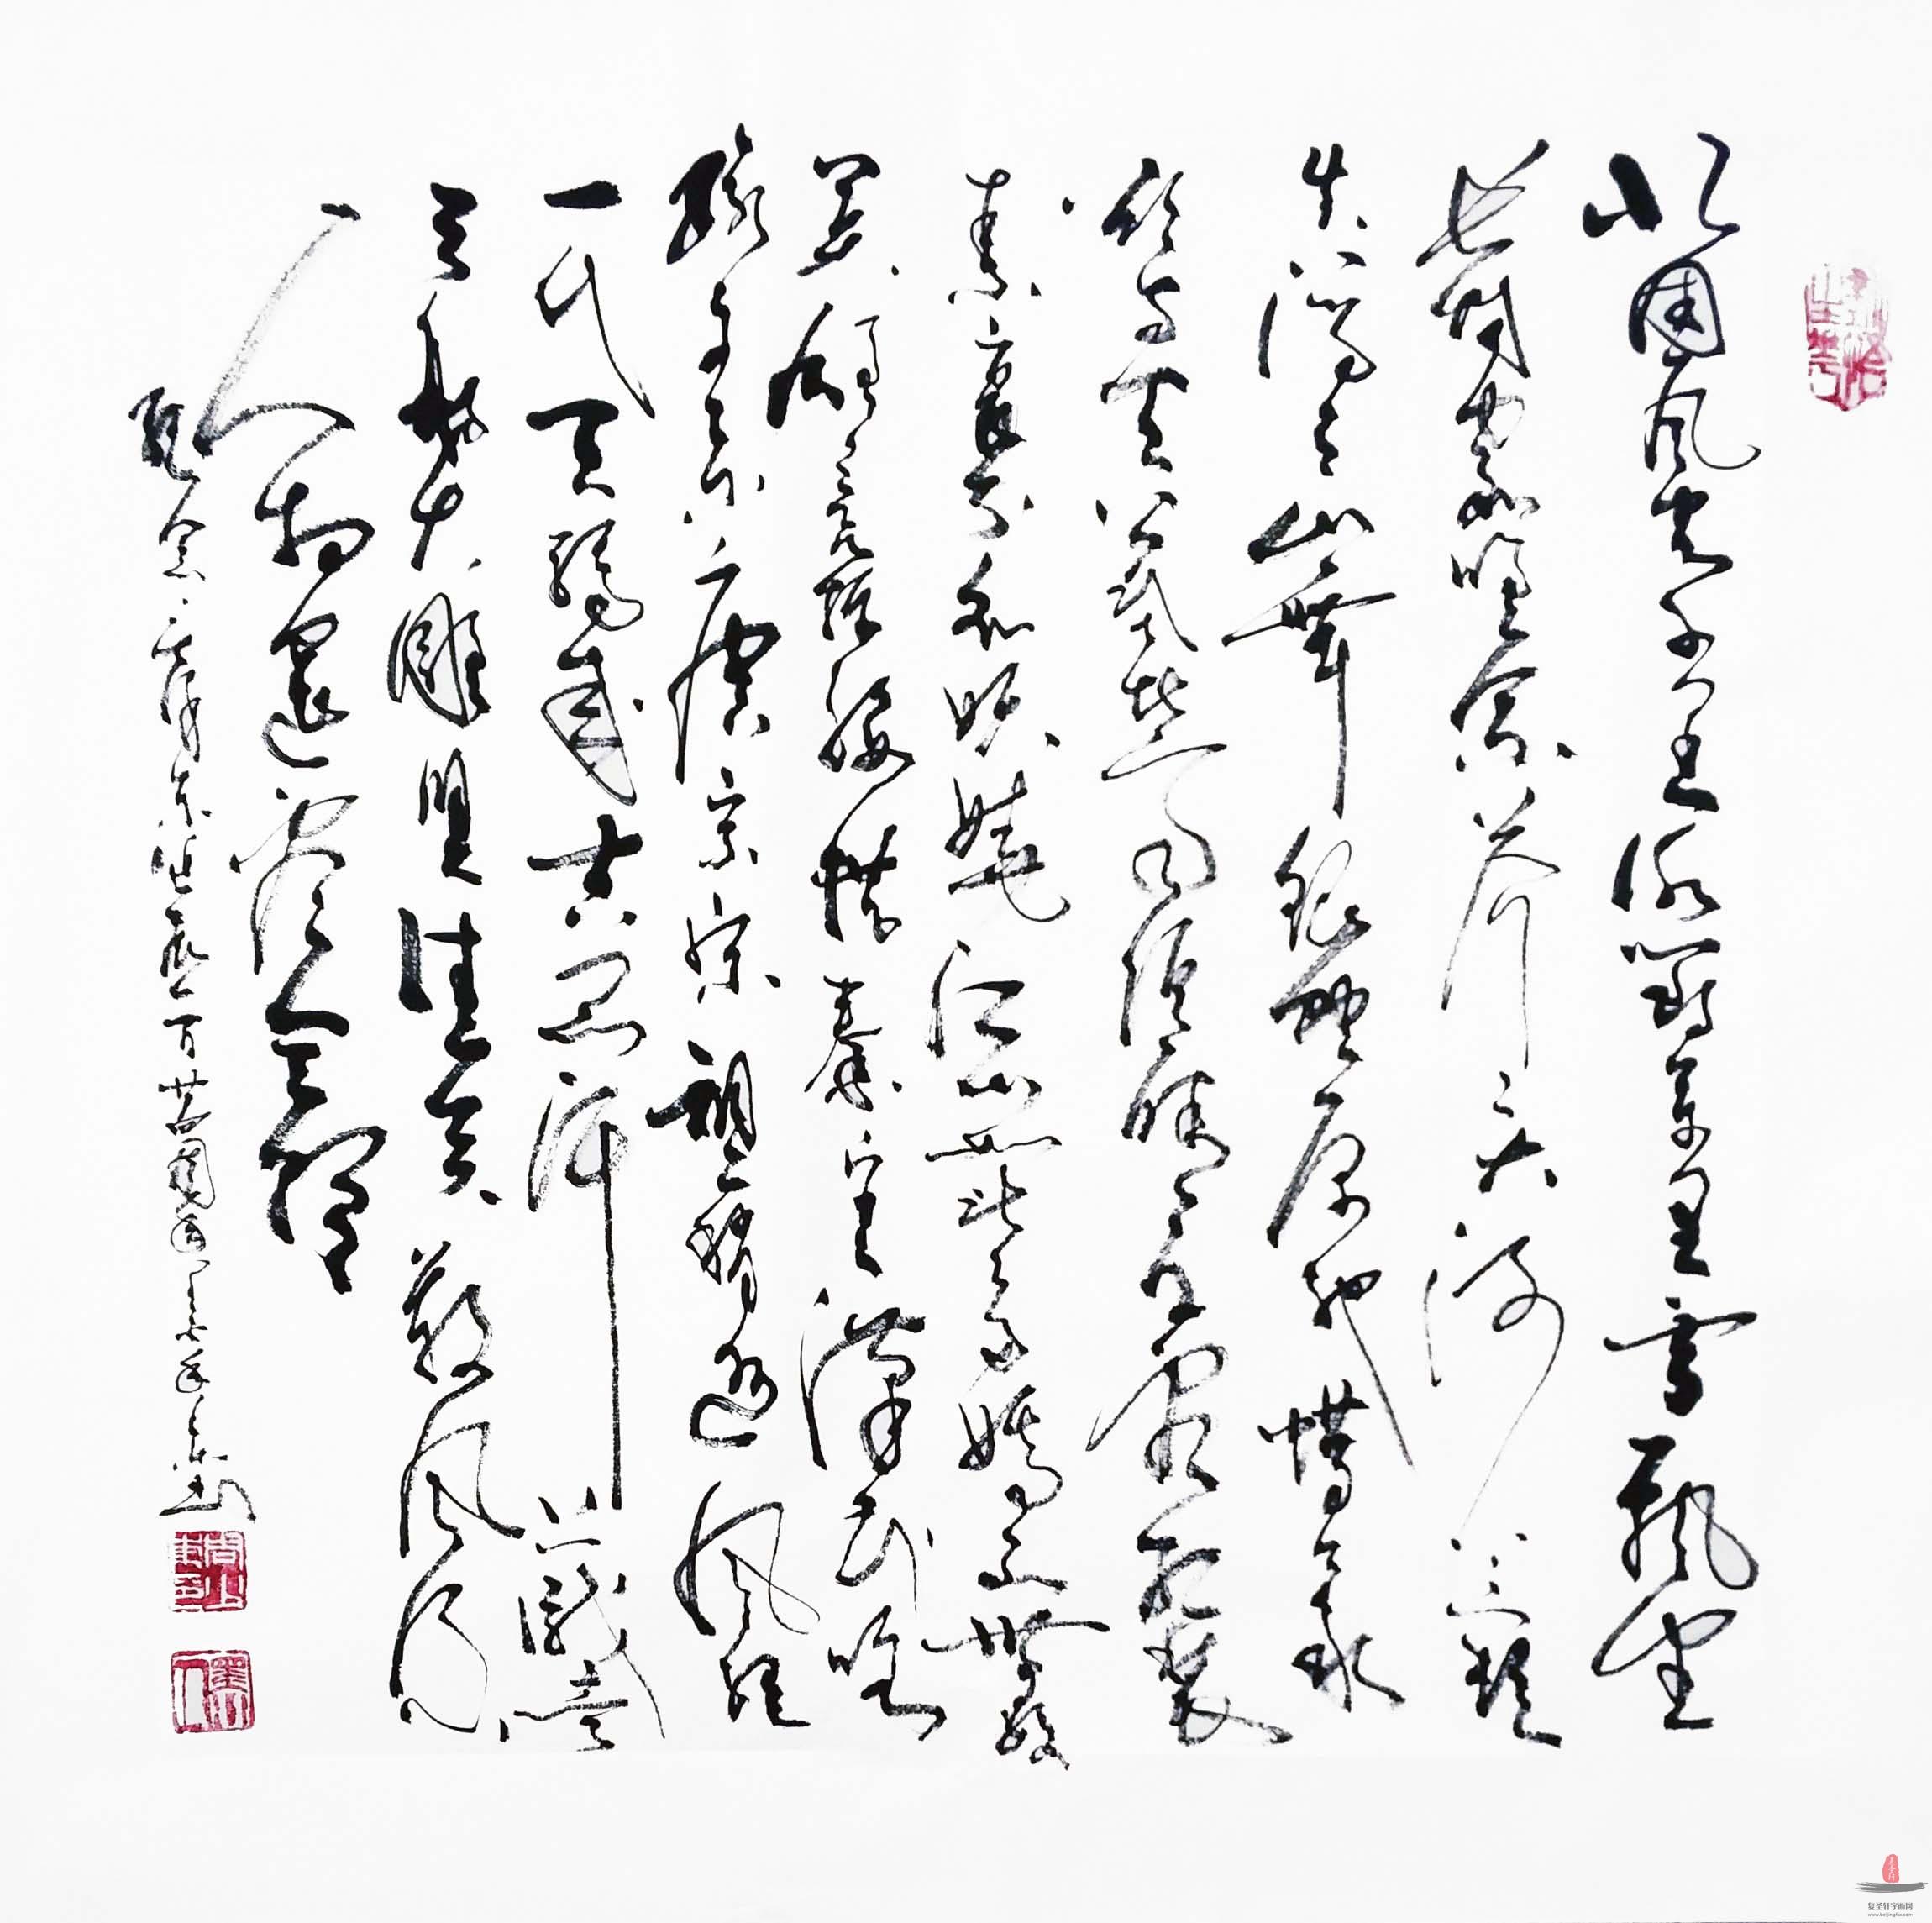 北国风光千里冰封万里雪飘望
长城内外惟余莽莽大河上下顿
失滔滔山舞银蛇原驰蜡象
欲与天公试比高须晴日看红装
素裹分外妖娆江山如此多娇引无数
英雄竞折腰惜秦皇漢武略
输文采唐宗宋祖稍逊风骚
一代天骄成吉思汗只識
弓射大雕俱往矣数风流
人物還看今朝
纪念毛泽东诞辰一百廿周年
墨人
复圣轩字画网